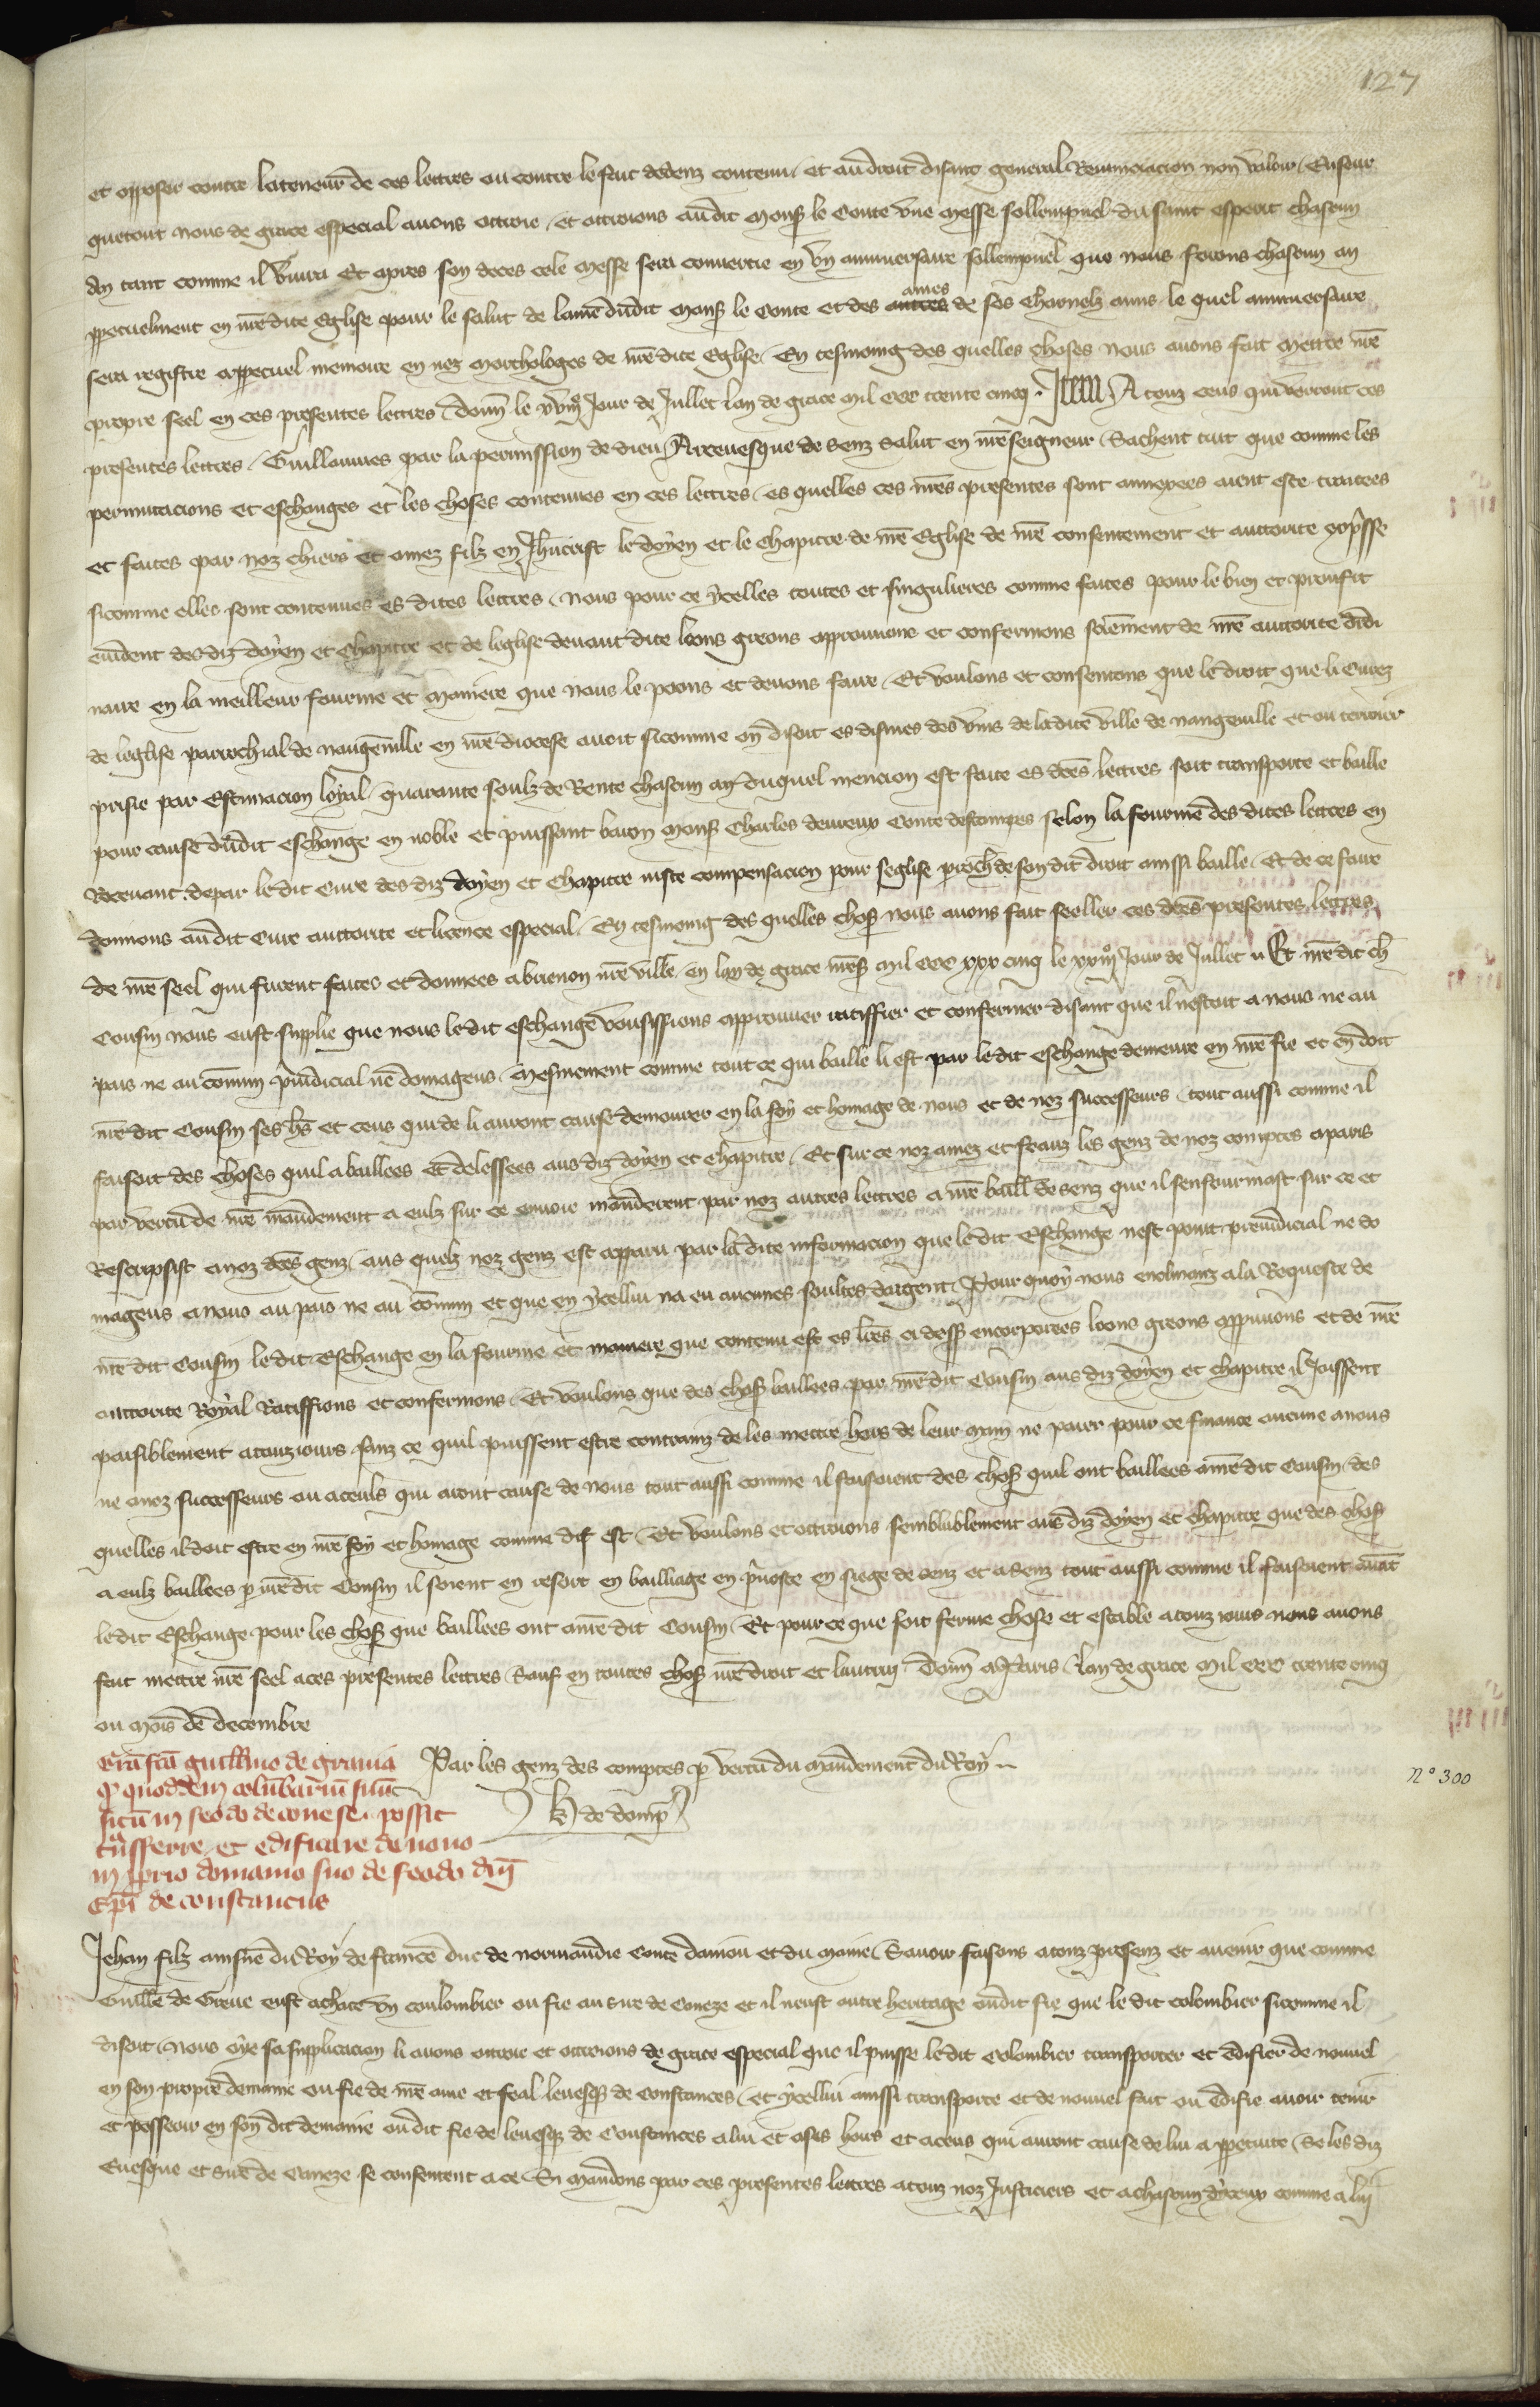 127
et opposer contre la teneur de ces lettres ou contre le fait dedenz contenu et au droit disant general Renunciacion non valoir Ensour
quetout nous de grace especial avons ottroie et ottroions audit Mons le Conte vne messe sollempnel du saint esperit chascun
An tant comme il vivra Et apres son deces cele messe sera convertie en vn anniversaire sollempnel que nous ferons chascun an
ppetuelment en nre dite Eglise pour le salut de lame dudit mons le Conte et des ames de ses charnelz amis le quel anniversaire
sera registre appetuel memoire en noz Marthologes de nre dite Eglise En tesmoing des quelles choses nous avons fait mettre nre
propre seel en ces presentes lettres donn le Jour de Jullet lan de grace mil ccc trente cinq Item A touz ceus qui verront ces
presentes lettres Guillaumes par la permission de dieu Arcevesque de Senz salut en nre seigneur Sachent tuit que comme les
permutacions et eschanges et les choses contenues en ces lettres es quelles ces nres presentes sont annexees aient este traitees
et faites par noz chiers et amez filz en Jhucrist le doyen et le chapitre de nre Eglise de nre consentement et auttorite expresse
sicomme elles sont contenues es dites lettres nous pour ce ycelles toutes et singulieres comme faites pour le bien et proufit
evident des diz doyen et Chapitre et de leglise devant dite loons greons approuvons et confermons sciemment de nre auttorite ordi
naire en la meilleur fourme et maniere que nous le poons et devons faire Et voulons et consentons que le droit que li Curez
de leglise parrochial de nangeville en nre diocese avoit sicomme on disoit es dismes des vins de ladite ville de nangeville et ou terroier
prisie par Estimacion loyal quarante soulz de Rente chascun an duquel mencion est faite es dces lettres soit transporte et baille
pour cause dudit eschange en noble et puissant baron mons Charles devreux Conte destampes selon la fourme des dites lettres en
Recevant depar le dit Cure des diz doyen et Chapitre iuste compensacion pour seglise proch de son dit droit ainssi baille Et de ce faire
donnons audit Cure auttorite et licence especial En tesmoing des quelles choses nous avons fait seeller ces dces presentes lettres
de nre seel qui furent faites et donnees a brienon nre ville en lan de grace mil ccc xxx cinq le Jour de Jullet Et nre dit ch
Cousin nous eust supplie que nous le dit eschange vousissions approuver ratiffier et confermer disant que il nestoit a nous ne au
pais ne au comun preiudicial ne domageus Mesmement comme tout ce qui baille li est par le dit eschange demeure en nre fie et en doit
nre dit Cousin ses hs et ceus qui de li auront cause demourer en la foy et homage de nous et de noz successeurs tout aussi comme il
faisoit des choses quil a baillees et delessees aus diz doyen et chapitre Et sur ce noz amez et feauz les genz de noz comptes a paris
par vertu de nre mandement a eulz sur ce envoie manderent par noz autres lettres a nre baill de senz que il senfourmast sur ce et
Rescripsist a noz dces genz aus quelz noz genz est apparu par la dite informacion que le dit Eschange nest point preiudicial ne do
mageus a nous au pais ne au comun et que en ycelli na eu aucunes soultes dargent Pour quoy nous enclinanz a la Requeste de
nre dit Cousin le dit Eschange en la fourme et maniere que contenu est es lres ci dess encorporees loons greons approuvons et de nre
auttorite Royal Ratiffions et confermons Et voulons que des choses baillees par nre dit Cousin aus diz doyen et chapitre il Joissent
paisiblement atouziours sanz ce quil puissent estre contrainz de les mettre hors de leur main ne paier pour ce finance aucune a nous
ne a noz successeurs ou a ceuls qui aront cause de nous tout aussi comme il faisoient des choses quil ont baillees a nre dit Cousin des
quelles il doit estre en nre foy et homage comme dit est Et voulons et ottroions semblablement aus diz doyen et chapitre que des choses
a eulz baillees p nre dit Cousin il soient en resort en bailliage en prevoste en siege de senz et a senz tout aussi comme il faisoient avant
le dit Eschange pour les choses que baillees ont a nre dit Cousin Et pour ce que soit ferme chose et estable a touz iours nous avons
fait mettre nre seel a ces presentes lettres Sauf en toutes choses nre droit et lautruy Donn a Paris lan de grace mil ccc trente cinq
ou mois de decembre
Par les genz des comptes p vertu du mandement du Roy
de domp
Gra fca guillmo de gravia
q quoddem columbarium suum
situm in feodo de conese possit
transferre et edificare de novo
in pprio domanio suo de feodo dni
Epi de constanciis
n° 300
Jehan filz ainsne du Roy de france duc de normandie Conte daniou et du maine Savoir faisons a touz presenz et avenir que comme
Guille de Greve eust achate vn coulombier ou fie au sire de Coneze et il neust autre heritage oudit fie que le dit colombier sicomme il
disoit Nous oye sa supplicacion li avons ottroie et ottroions de grace especial que il puisse le dit Colombier transporter et edifier de nouvel
en son propre demaine ou fie de nre ame et feal levesque de Constances et ycelli ainssi transporte et de nouvel fait ou edifie avoir tenir
et possoir en son dit demaine oudit fie de levesque de Constances a lui et a ses hoirs et a ceus qui auront cause de lui a ppetuite Se les diz
Evesque et sire de Coneze se consentent a ce Si mandons par ces presentes lettres a touz noz Justiciers et a chascun dyceux comme a lui